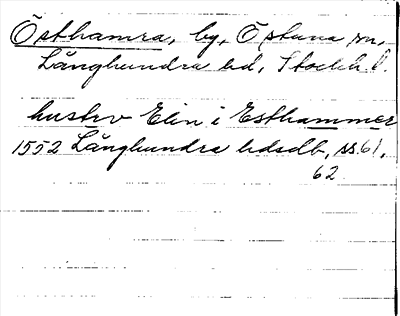 Östhamra, by, Östuna sn,
Långhundra hd, Stockh. l.
hustrv Elin i Esthammer
1552 Långhundra hdsdb, ss. 61,
62